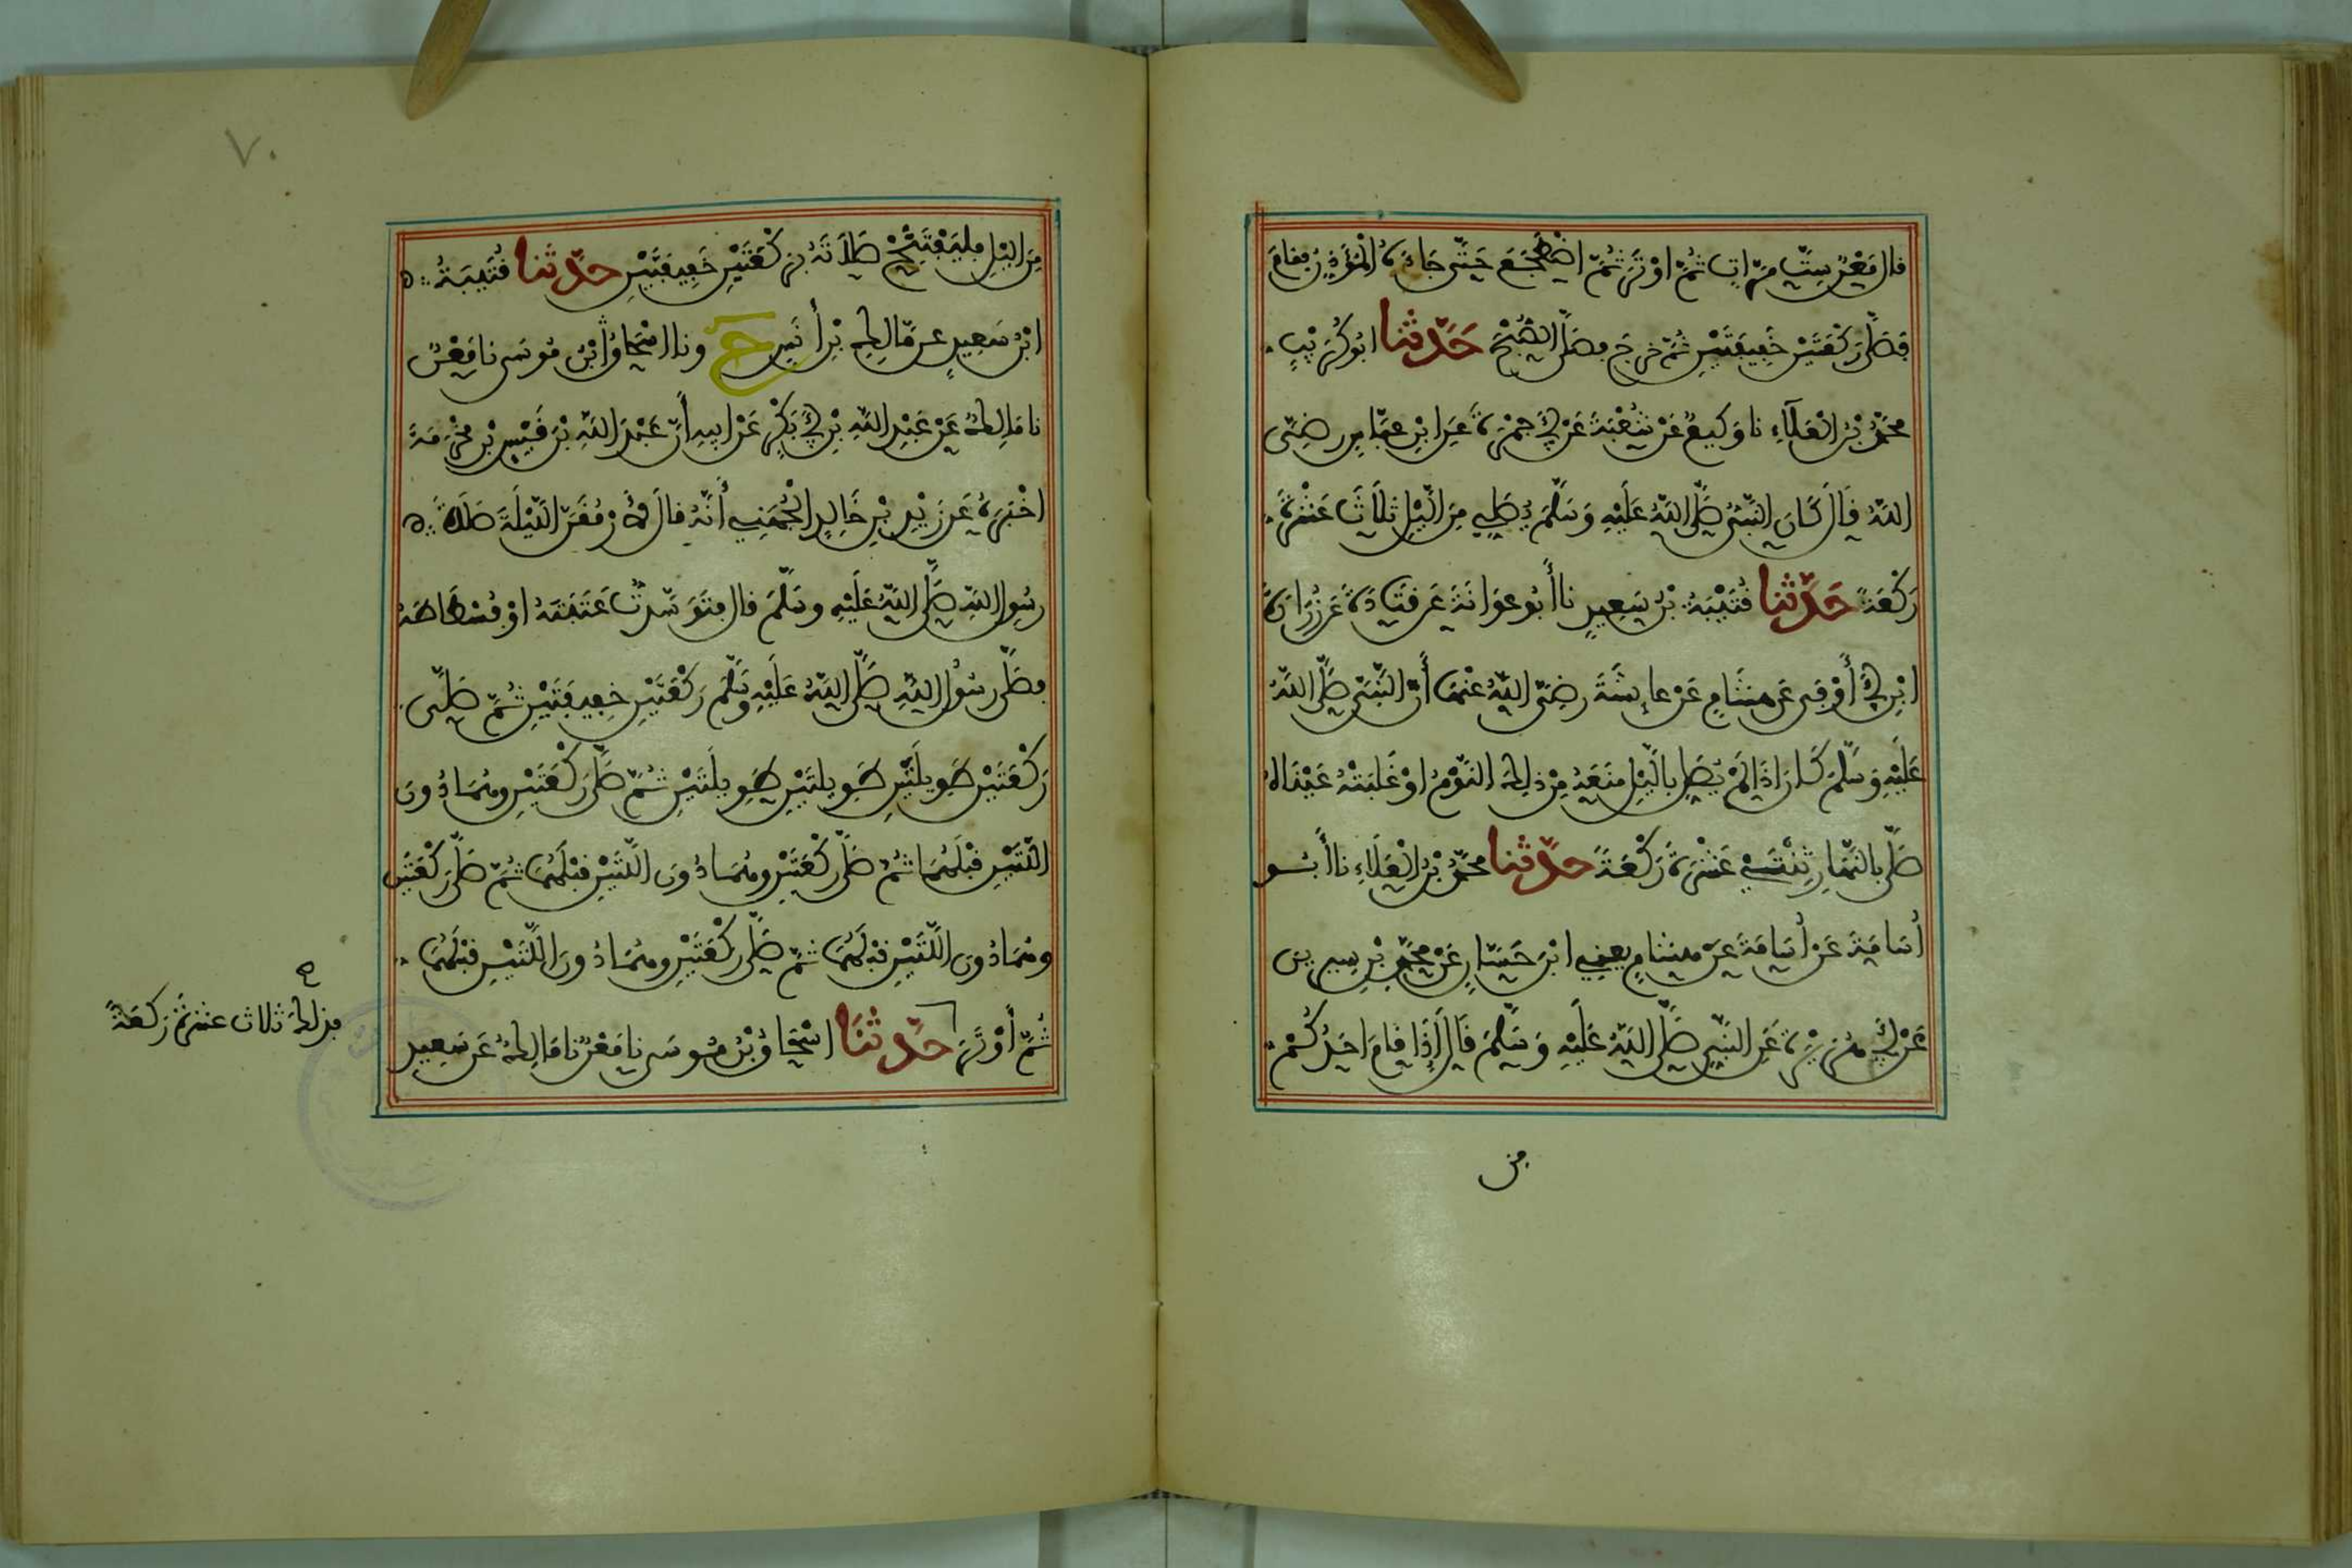 قال مَعْنٌ سِتَّ مَرّاتٍ ثُمَّ اوْتَرَ ثُمَّ اضْطَجَعَ حَتّى جَاءَهُ الْمُؤَذِّنُ فقامَ
فَصَلَّى رَكْعَتَيْنِ خَفِيفَتَيْنِ ثُمَّ خرجَ فصَلَّى الصُّبْحَ حَدَّثنا ابُو كُرَيْبٍ
محمّدُ بْنُ الْعَلَاءِ نا وَكِيعٌ عَنْ شُعْبَةَ عَنْ أَبِي جَمْرَةَ عَنِ ابْنِ عبّاسٍ رضِيَ
اللهُ قَالَ كَانَ النَّبِيُّ صَلَّى اللهُ عَلَيْهِ وَسَلَّمَ يُصَلِّي مِنَ الَّيْلِ ثَلَاثَ عَشْرَةَ
رَكْعَةً حَدَّثنا قُتَيْبَةُ بْنُ سَعِيدٍ نا أَبُو عوَانَةَ عَن قَتَادَةَ عَن زُرَارَةَ
ابْنِ أَبِي أَوْفى عَن هشَامٍ عَنْ عايِشَةَ رضِيَ اللهُ عنْهَا أَنَّ النَّبِيَّ صَلَّى اللهُ
عَلَيْهِ وَسَلَّمَ كَانَ اذَا لَمْ يُصَلِّ بالَّيْلِ منَعَهُ مِنْ ذلِكَ النَّوْمُ اوْ غَلَبَتْهُ عَيْنَاهُ
صَلَّى بالنَّهَارِ ثِنْتَيْ عَشْرَةَ رَكْعَةً حدَّثنا محمّدُ بْنُ الْعَلَاءِ نا أَبُو
أُسَامَةَ عَنْ أُسَامَةَ عَنْ هشامٍ يعني ابْنَ حَسّانٍ عَنْ محمّدِ بْنِ سِيرِينَ
عَنْ أَبِي هُرَيْرَةَ عَنِ النَّبِيِّ صَلَّى اللهُ عَلَيْهِ وَسَلَّمَ قَالَ إِذَا قامَ احَدُكُمْ
من
٧٠
مِنَ الَّيْلِ فليَفْتَتِحْ صَلَاتَهُ برَكْعَتَيْنِ خَفِيفَتَيْنِ حدَّثنا قُتَيبَةُ
ابْنُ سَعِيدٍ عن مَّالِكِ بْنِ أَنَسٍ حَ ونا اسْحَاقُ ابْنُ مُوسَى نا مَعْنٌ
نا مَالِكٌ عَنْ عَبْدِ اللهِ بْنِ أَبِي بَكْرٍ عَنْ ابيهِ أَنَّ عَبْدَ اللهِ بْنَ قَيْسِ بْنِ مخْرَمَةَ
اخْبَرَهُ عَن زَيْدِ بْنِ خَالِدٍ الْجُهَنِي أَنَّهُ قالَ لَأَرْمُقَنَّ اللَّيْلَةَ صَلَاةَ
رسُولِ اللهِ صَلَّى اللهُ عَلَيْهِ وسَلَّمَ قال فتَوَسَّدتُّ عَتَبَتَهُ اوْ فُسْطَاطَهُ
فصَلَّى رسُولُ اللهِ صَلَّى اللهُ عَلَيْهِ وَسَلَّمَ رَكْعَتَيْنِ خفِيفَتَيْنِ ثُمَّ صَلَّى
رَكْعَتَيْنِ طَوِيلَتَيْنِ طَوِيلتَيْنِ طَوِيلَتَيْنِ ثُمَّ صَلَّى رَكْعَتَيْنِ وهُمَا دُونَ
اللّتَيْنِ قبْلَهُمَا ثُمَّ صَلَّى رَكْعَتَيْنِ وهُمَا دُونَ اللّتَيْنِ قبْلَهُمَا ثُمَّ صَلَّى رَكْعَتَيْنِ
وهُمَا دُونَ اللّتَيْنِ قبْلَهُمَا ثمَّ صَلَّى رَكْعَتَيْنِ وهُمَا دُونَ اللّتَيْنِ قبْلَهُمَا
ثُمَّ أَوْتَرَ حَدَّثنَا اسْحَاقُ بْنُ مُوسَى نا مَعْنٌ نا مَالِكٌ عَن سَعِيدِ
فذلك ثلاث عشرةَ ركعَةً